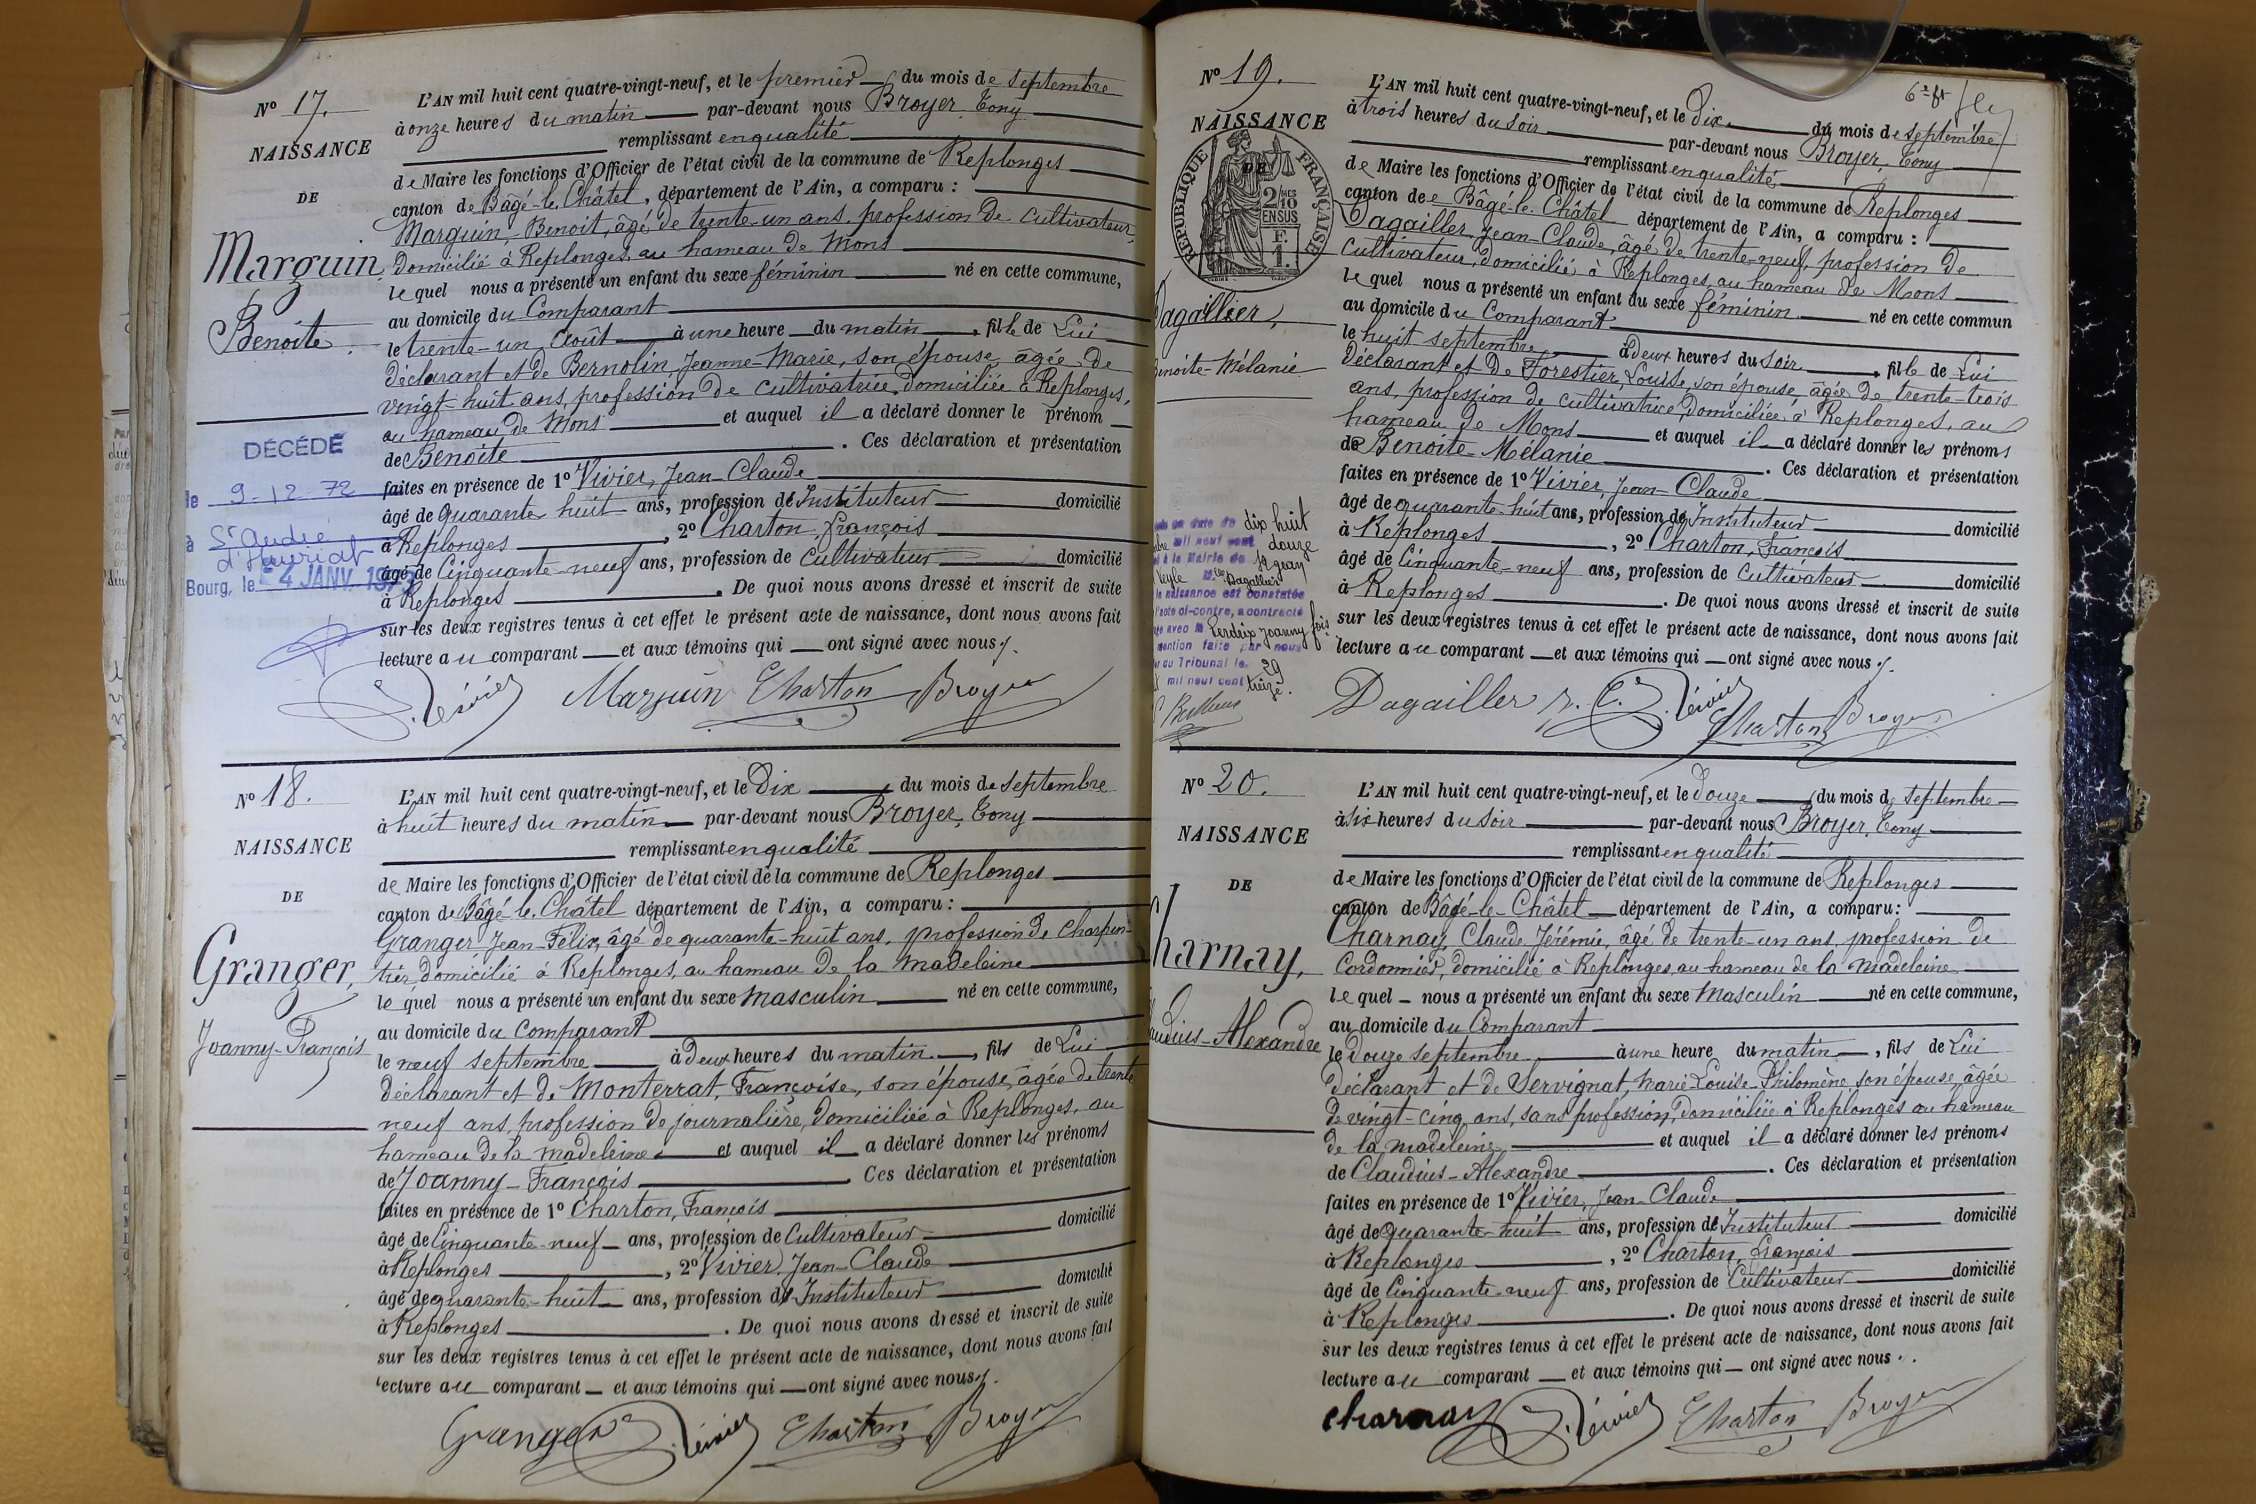 N° 17.
NAISSANCE
DE
Marguin
Benoîte
DÉCÉDÉ
le 9-12 72
à St André
d'Huiriat
Bourg, le 4 JANV. 1973
L'AN mil huit cent quatre-vingt-neuf, et le premier du mois de septembre
à onze heures du matin par-devant nous Broyer, Tony
remplissant en qualité
de Maire les fonctions d'Officier de l'état civil de la commune de Replonges
canton de Bâgé-le-Châtel, département de l'Ain, a comparu :
Marguin, Benoit, âgé de trente-un ans, profession de cultivateur,
domicilié à Replonges, au hameau de Mons
lequel nous a présenté un enfant du sexe féminin né en cette commune,
au domicile du Comparant
le trente-un Août à une heure du matin, fille de Lui
déclarant et de Bernolin, Jeanne-Marie, son épouse, âgée de
vingt-huit ans, profession de cultivatrice, domiciliée à Replonges,
au hameau de Mons et auquel il a déclaré donner le prénom
de Benoîte. Ces déclaration et présentation
faites en présence de 1° Vivier, Jean-Claude
âgé de quarante huit ans, profession d'Instituteur domicilié
à Replonges, 2° Charton, François
âgé de Cinquante-neuf ans, profession de cultivateur domicilié
à Replonges. De quoi nous avons dressé et inscrit de suite
sur les deux registres tenus à cet effet le présent acte de naissance, dont nous avons fait
lecture au comparant et aux témoins qui ont signé avec nous.
J. Vivier Marguin Charton Broyer
N° 18.
NAISSANCE
DE
Granger,
Joanny-François
L'AN mil huit cent quatre-vingt-neuf, et le Dix du mois de septembre
à huit heures du matin par-devant nous Broyer, Tony
remplissant en qualité
de Maire les fonctions d'Officier de l'état civil de la commune de Replonges
canton de Bâgé-le-Châtel département de l'Ain, a comparu :
Granger Jean-Félix, âgé de quarante-huit ans, profession de Charpen-
tier, domicilié à Replonges, au hameau de la Madeleine
lequel nous a présenté un enfant du sexe masculin né en cette commune,
au domicile du comparant
le neuf septembre à Deux heures du matin, fils de Lui
déclarant et de Monterrat, Françoise, son épouse, âgée de trente
neuf ans, profession de journalière, domiciliée à Replonges, au
hameau de la madeleine et auquel il a déclaré donner les prénoms
de Joanny-François. Ces déclaration et présentation
faites en présence de 1° Charton, François
âgé de Cinquante-neuf ans, profession de Cultivateur domicilié
à Replonges, 2° Vivier, Jean-Claude
âgé de quarante-huit ans, profession d'Instituteur domicilié
à Replonges. De quoi nous avons dressé et inscrit de suite
sur les deux registres tenus à cet effet le présent acte de naissance, dont nous avons fait
lecture au comparant et aux témoins qui ont signé avec nous.
Granger J. Vivier Charton Broyer
N° 19.
NAISSANCE
DE
RÉPUBLIQUE FRANÇAISE
2/10 EN SUS
F. 1.
Dagallier,
Benoîte-Mélanie
en date du dix huit
mil neuf cent douze
à la Mairie de St Jean
Veyle Melle Dagallier
la naissance est constatée
l'acte ci-contre, a contracté
avec M Perdrix Joanny fois
mention faite par nous
du Tribunal le 29
mil neuf cent treize.
L'AN mil huit cent quatre-vingt-neuf, et le Dix du mois de septembre
à trois heures du soir par-devant nous Broyer, Tony
remplissant en qualité
de Maire les fonctions d'Officier de l'état civil de la commune de Replonges
canton de Bâgé-le-Châtel département de l'Ain, a comparu :
Dagailler, Jean-Claude, âgé de trente-neuf, profession de
cultivateur, domicilié à Replonges, au hameau de Mons
lequel nous a présenté un enfant du sexe féminin né en cette commun
au domicile du Comparant
le huit septembre à deux heures du soir, fille de Lui
déclarant et de Forestier, Louise, son épouse, âgée de trente-trois
ans, profession de cultivatrice, domiciliée à Replonges, au
hameau de Mons et auquel il a déclaré donner les prénoms
de Benoîte-Mélanie. Ces déclaration et présentation
faites en présence de 1° Vivier, Jean-Claude
âgé de quarante-huit ans, profession d'Instituteur domicilié
à Replonges, 2° Charton, François
âgé de Cinquante-neuf ans, profession de Cultivateur domicilié
à Replonges. De quoi nous avons dressé et inscrit de suite
sur les deux registres tenus à cet effet le présent acte de naissance, dont nous avons fait
lecture au comparant et aux témoins qui ont signé avec nous.
Dagailler J. C. J. Vivier Charton Broyer
N° 20.
NAISSANCE
DE
Charnay,
Claudius-Alexandre
L'AN mil huit cent quatre-vingt-neuf, et le Douze du mois de septembre
à six heures du soir par-devant nous Broyer, Tony
remplissant en qualité
de Maire les fonctions d'Officier de l'état civil de la commune de Replonges
canton de Bâgé-le-Châtel département de l'Ain, a comparu :
Charnay, Claude Jérémie, âgé de trente-un ans, profession de
Cordonnier, domicilié à Replonges, au hameau de la Madeleine
lequel nous a présenté un enfant du sexe Masculin né en cette commune,
au domicile du Comparant
le Douze septembre à une heure du matin, fils de Lui
déclarant et de Servignat, Marie-Louise-Philomène, son épouse, âgée
de vingt-cinq ans, sans profession, domiciliée à Replonges au hameau
de la madeleine et auquel il a déclaré donner les prénoms
de Claudius-Alexandre. Ces déclaration et présentation
faites en présence de 1° Vivier, Jean-Claude
âgé de quarante-huit ans, profession d'Instituteur domicilié
à Replonges, 2° Charton, François
âgé de Cinquante-neuf ans, profession de Cultivateur domicilié
à Replonges. De quoi nous avons dressé et inscrit de suite
sur les deux registres tenus à cet effet le présent acte de naissance, dont nous avons fait
lecture au comparant et aux témoins qui ont signé avec nous.
Charnay J. Vivier Charton Broyer